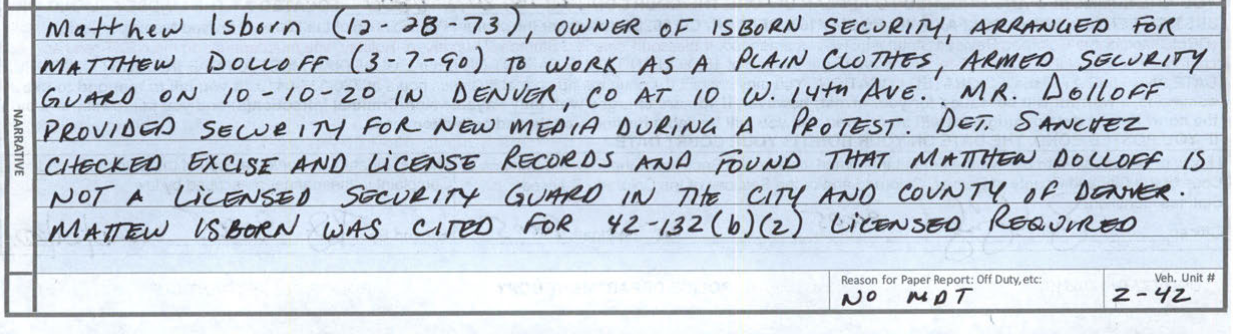 Matthew Isborn (12-28-73), OWNER OF ISBORN SECURITY, ARRANGED FOR
MATTHEW DOLLOFF (3-7-90) TO WORK AS A PLAIN CLOTHES, ARMED SECURITY
GUARD ON 10-10-20 IN DENVER, CO AT 10 W. 14th AVE. MR. DOLLOFF
PROVIDED SECURITY FOR NEW MEDIA DURING A PROTEST. DET. SANCHEZ
CHECKED EXCISE AND LICENSE RECORDS AND FOUND THAT MATTHEW DOLLOFF IS
NOT A LICENSED SECURITY GUARD IN THE CITY AND COUNTY OF DENVER.
MATTEW ISBORN WAS CITED FOR 42-132(b)(2) LICENSED REQUIRED
NARRATIVE
Reason for Paper Report: Off Duty, etc:
NO MDT
Veh. Unit #
2-42